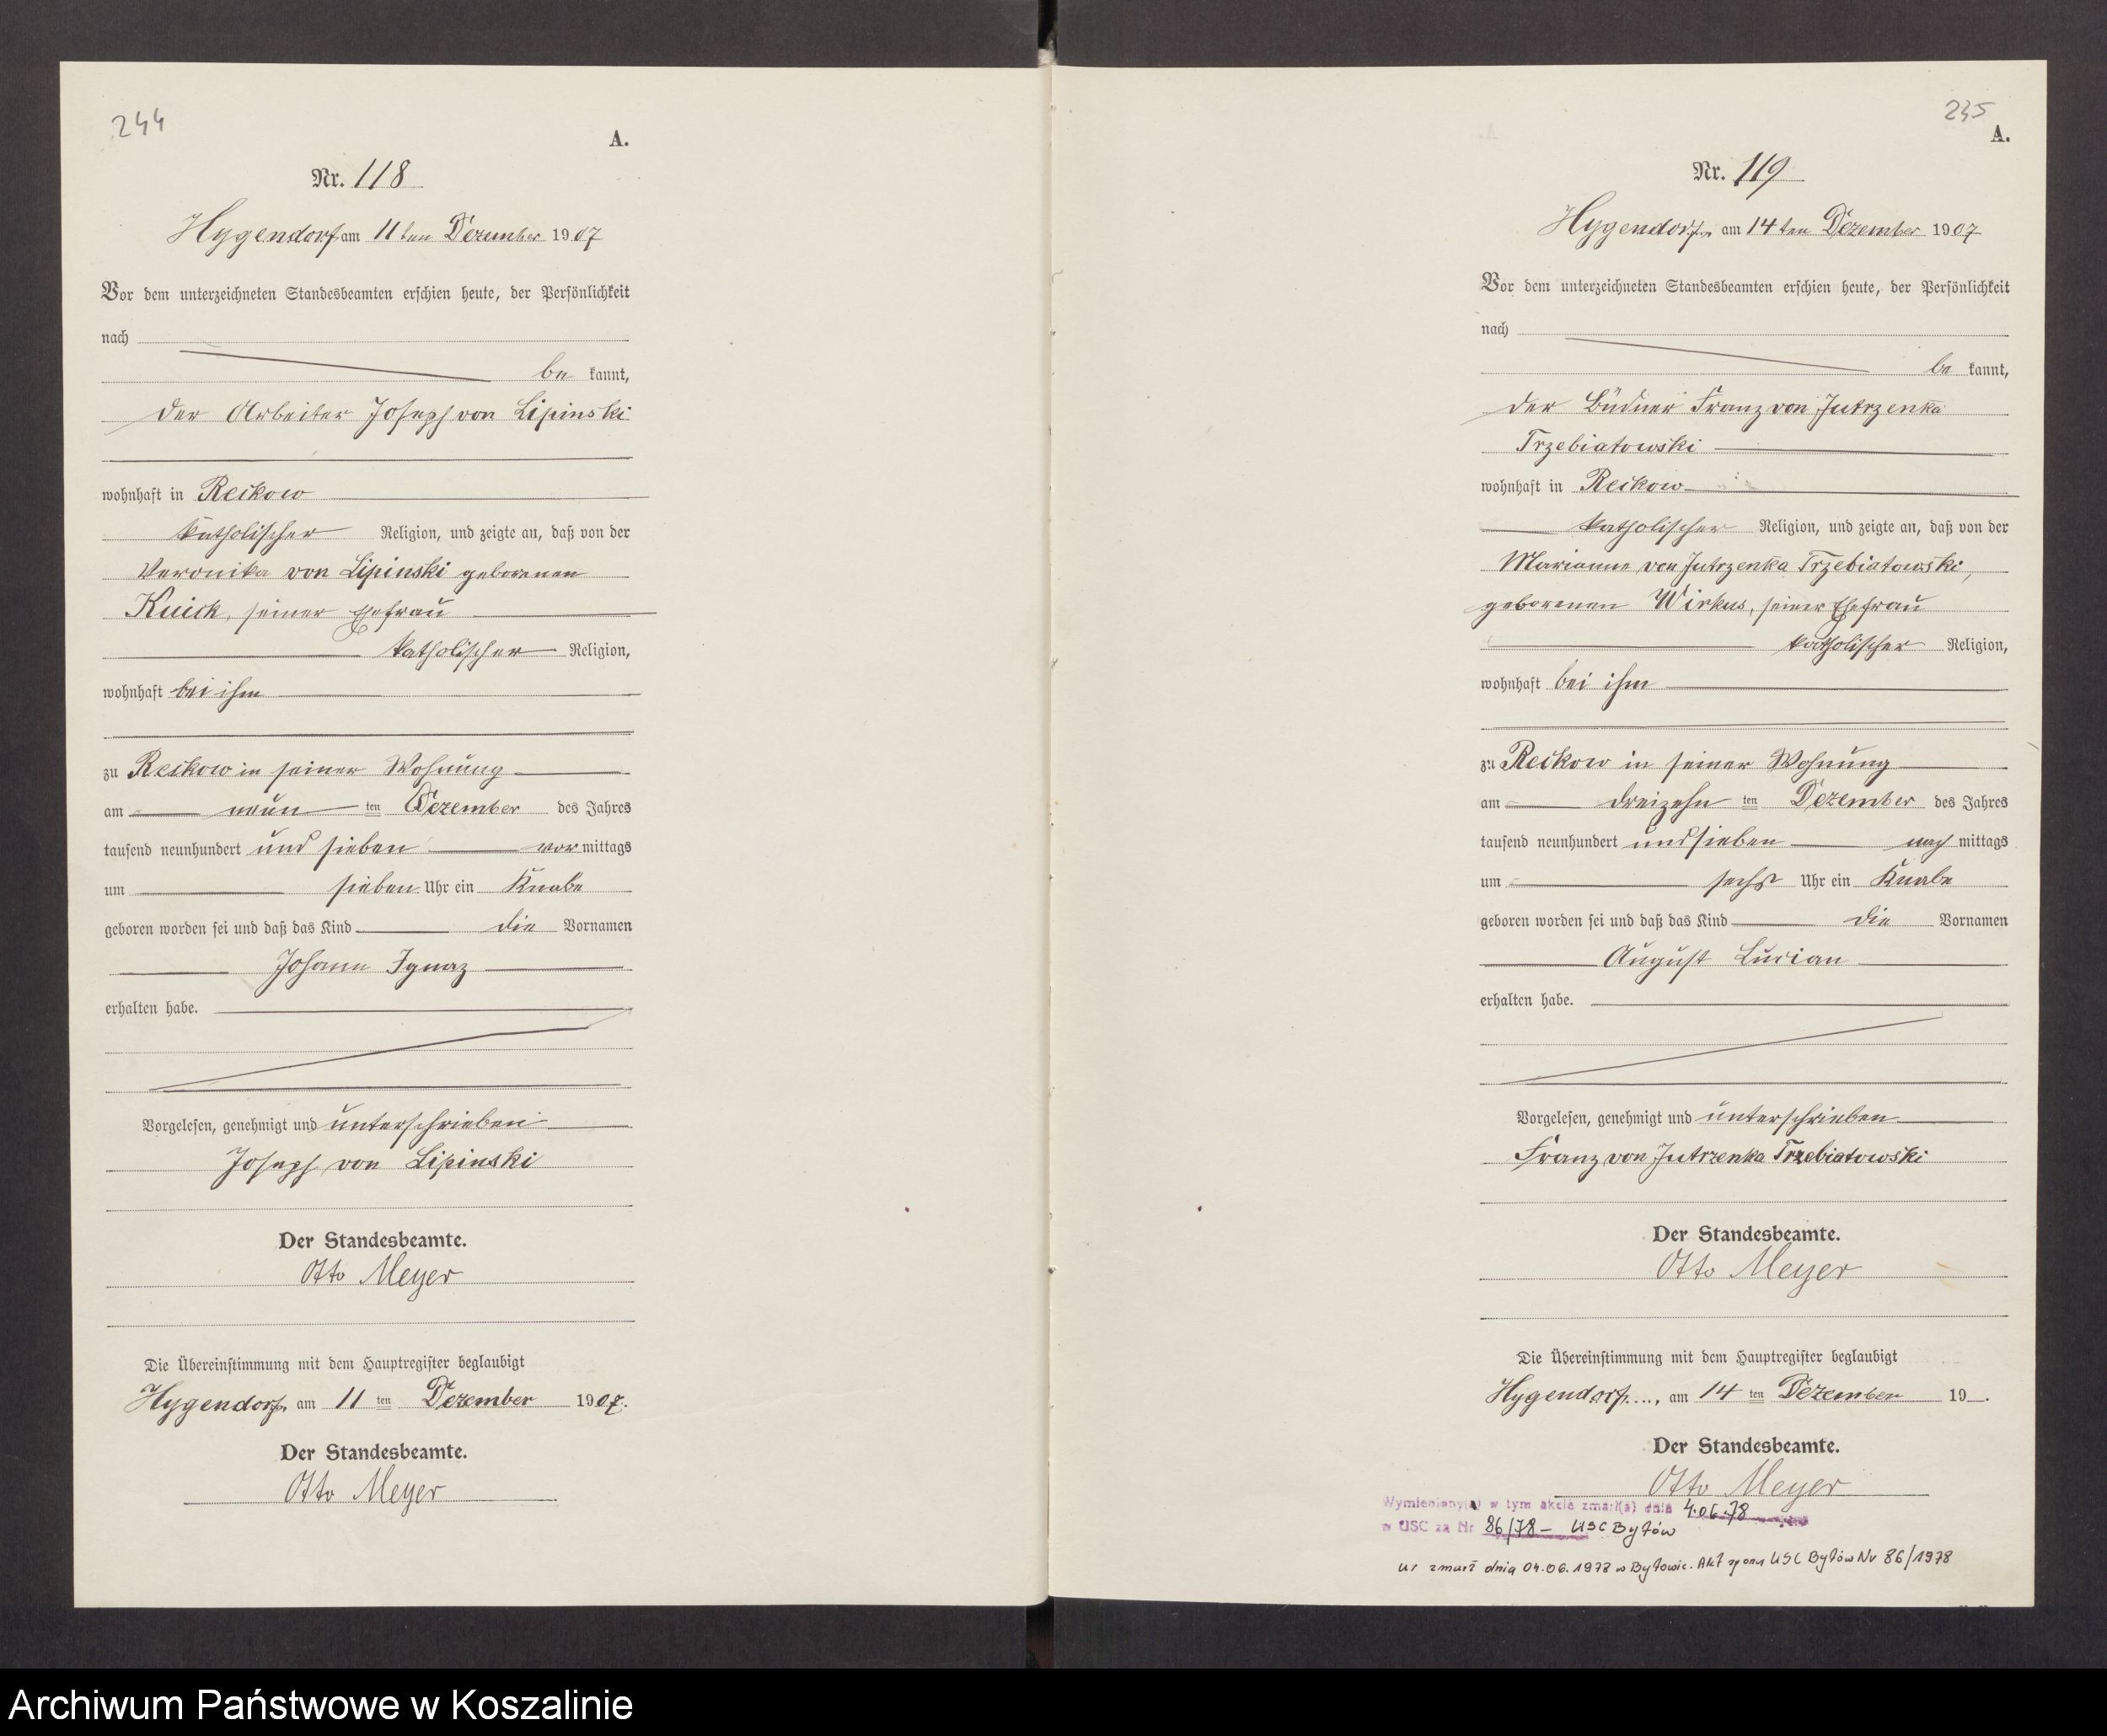 244
A.
Nr. 118
Hygendorf am 11ten Dezember 1907
Vor dem unterzeichneten Standesbeamten erschien heute, der Persönlichkeit
nach
be kannt,
der Arbeiter Joseph von Lipinski
wohnhaft in Reckow
katholischer Religion, und zeigte an, daß von der
Veronika von Lipinski geborenen
Kuick, seiner Ehefrau
katholischer Religion,
wohnhaft bei ihm
zu Reckow in seiner Wohnung
am neun ten Dezember des Jahres
tausend neunhundert und sieben vor mittags
um sieben Uhr ein Knabe
geboren worden sei und daß das Kind die Vornamen
Johann Ignaz
erhalten habe.
Vorgelesen, genehmigt und unterschrieben
Joseph von Lipinski
Der Standesbeamte.
Otto Meyer
Die Übereinstimmung mit dem Hauptregister beglaubigt
Hygendorf, am 11 ten Dezember 1907.
Der Standesbeamte.
Otto Meyer
235
A.
Nr. 119
Hygendorf, am 14ten Dezember 1907
Vor dem unterzeichneten Standesbeamten erschien heute, der Persönlichkeit
nach
be kannt,
der Büdner Franz von Jutrzenka
Trzebiatowski
wohnhaft in Reckow
katholischer Religion, und zeigte an, daß von der
Marianne von Jutrzenka Trzebiatowski,
geborenen Wirkus, seiner Ehefrau
katholischer Religion,
wohnhaft bei ihm
zu Reckow in seiner Wohnung
am dreizehn ten Dezember des Jahres
tausend neunhundert und sieben nach mittags
um sechs Uhr ein Knabe
geboren worden sei und daß das Kind die Vornamen
August Lucian
erhalten habe.
Vorgelesen, genehmigt und unterschrieben
Franz von Jutrzenka Trzebiatowski
Der Standesbeamte.
Otto Meyer
Die Übereinstimmung mit dem Hauptregister beglaubigt
Hygendorf, am 14 ten Dezember 19 .
Der Standesbeamte.
Otto Meyer
Wymieniony(a) w tym akcie zmarł(a) dnia 4.06.78
w USC za Nr 86/78 - USC Bytów
zmarł dnia 04.06.1978 w Bytowie. Akt zgonu USC Bytów Nr 86/1978
Archiwum Państwowe w Koszalinie